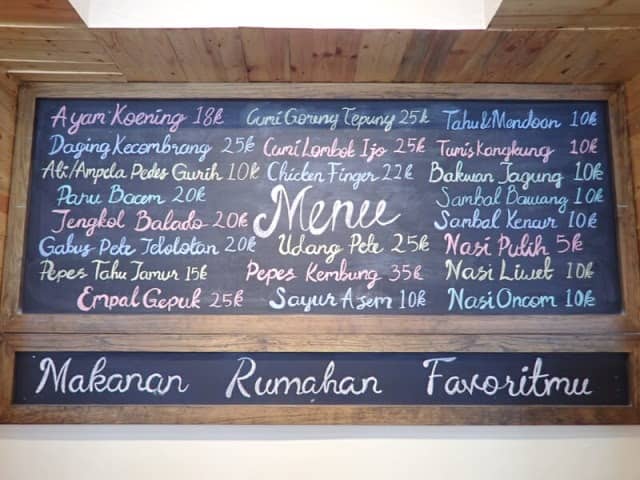 Ayam Koening 18k
Daging Kecombrang 25k
Ati/Ampela Pedes Gurih 10k
Paru Bacem 20k
Jengkol Balado 20k
Gabus Pete Telolotan 20k
Pepes Tahu Jamur 15k
Empal Gepuk 25k
Cumi Goreng Tepung 25k
Cumi Lombok Ijo 25k
Chicken Finger 22k
Menu
Udang Pete 25k
Pepes Kembung 35k
Sayur Asem 10k
Tahu & Mendoan 10k
Tumis Kangkung 10k
Bakwan Jagung 10k
Sambal Bawang 10k
Sambal Kencur 10k
Nasi Putih 5k
Nasi Liwet 10k
Nasi Oncom 10k
Makanan Rumahan Favoritmu